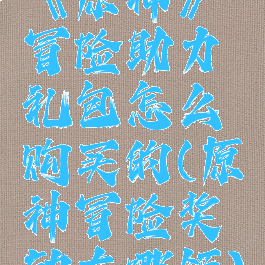 《原神》
冒险助力
礼包怎么
购买的(原
神冒险奖